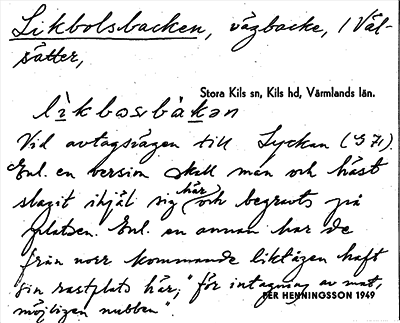 Likbolsbacken, vägbacke, / Väl-
sätter,
Stora Kils sn, Kils hd, Värmlands län.
Vid avtagsvägen till Lyckan (S 71).
Enl. en version skall man och häst
slagit ihjäl sig här och begravts på
platsen. Enl. en annan har de
från norr kommande liktågen haft
sin rastplats här, "för intagning av mat,
möjligen nubben"
PER HENNINGSSON 1949